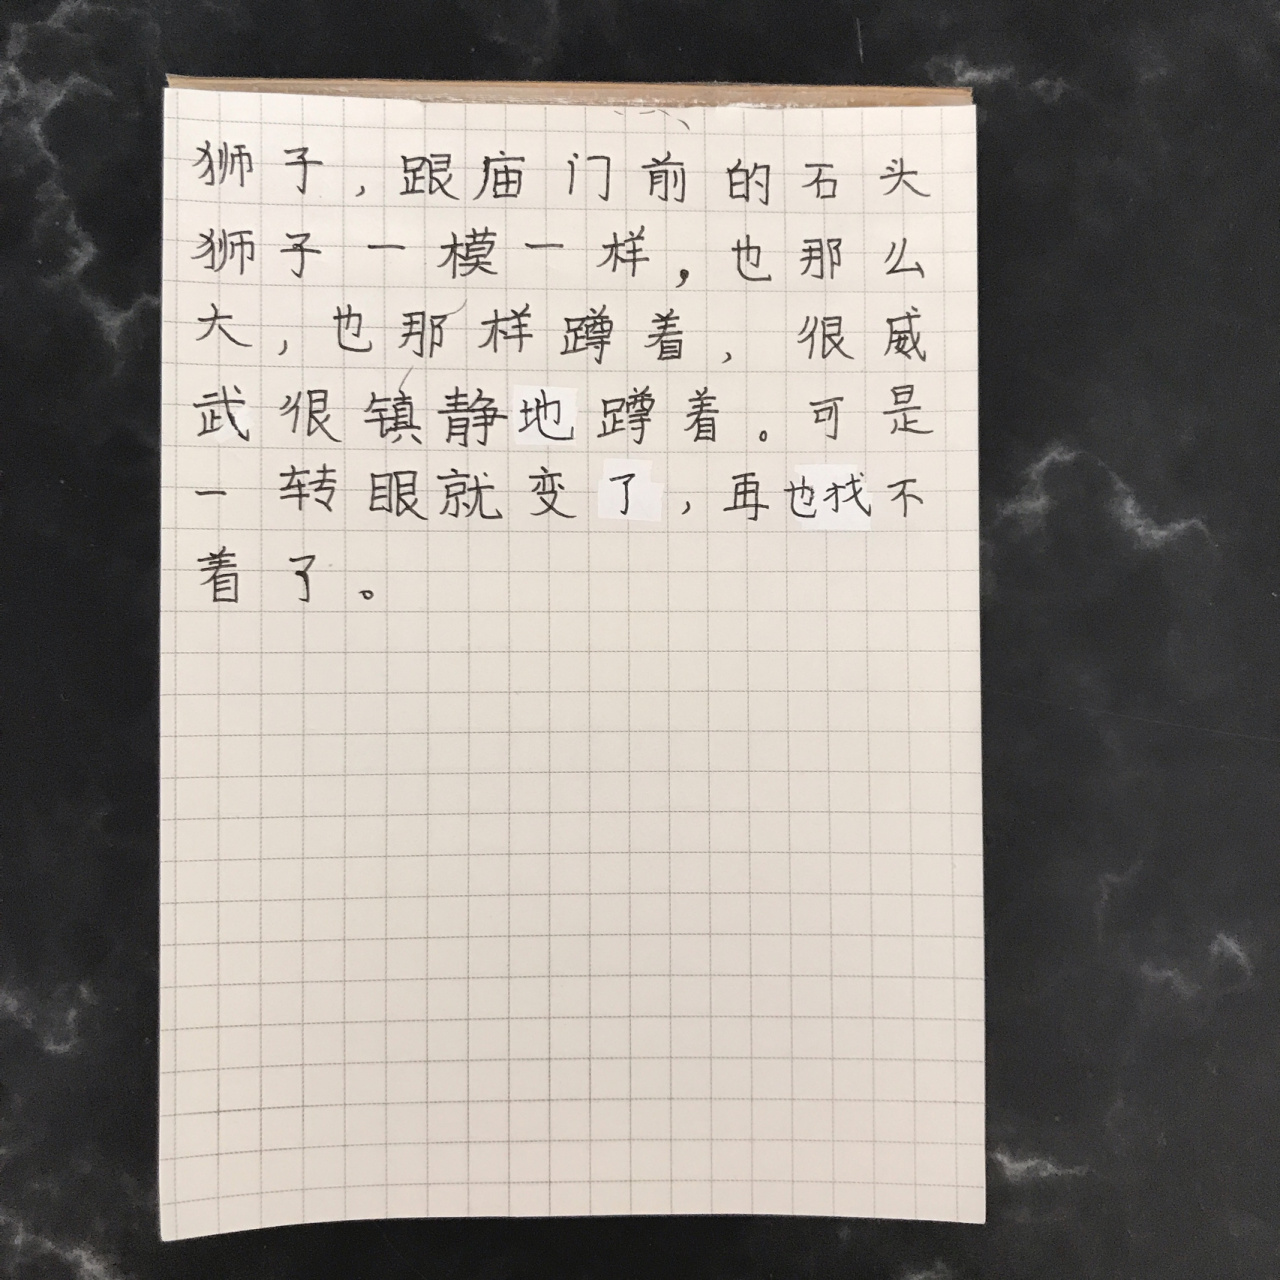 狮子，跟庙门前的石头
狮子一模一样，也那么
大，也那样蹲着，很威
武很镇静地蹲着。可是
一转眼就变了，再也找不
着了。